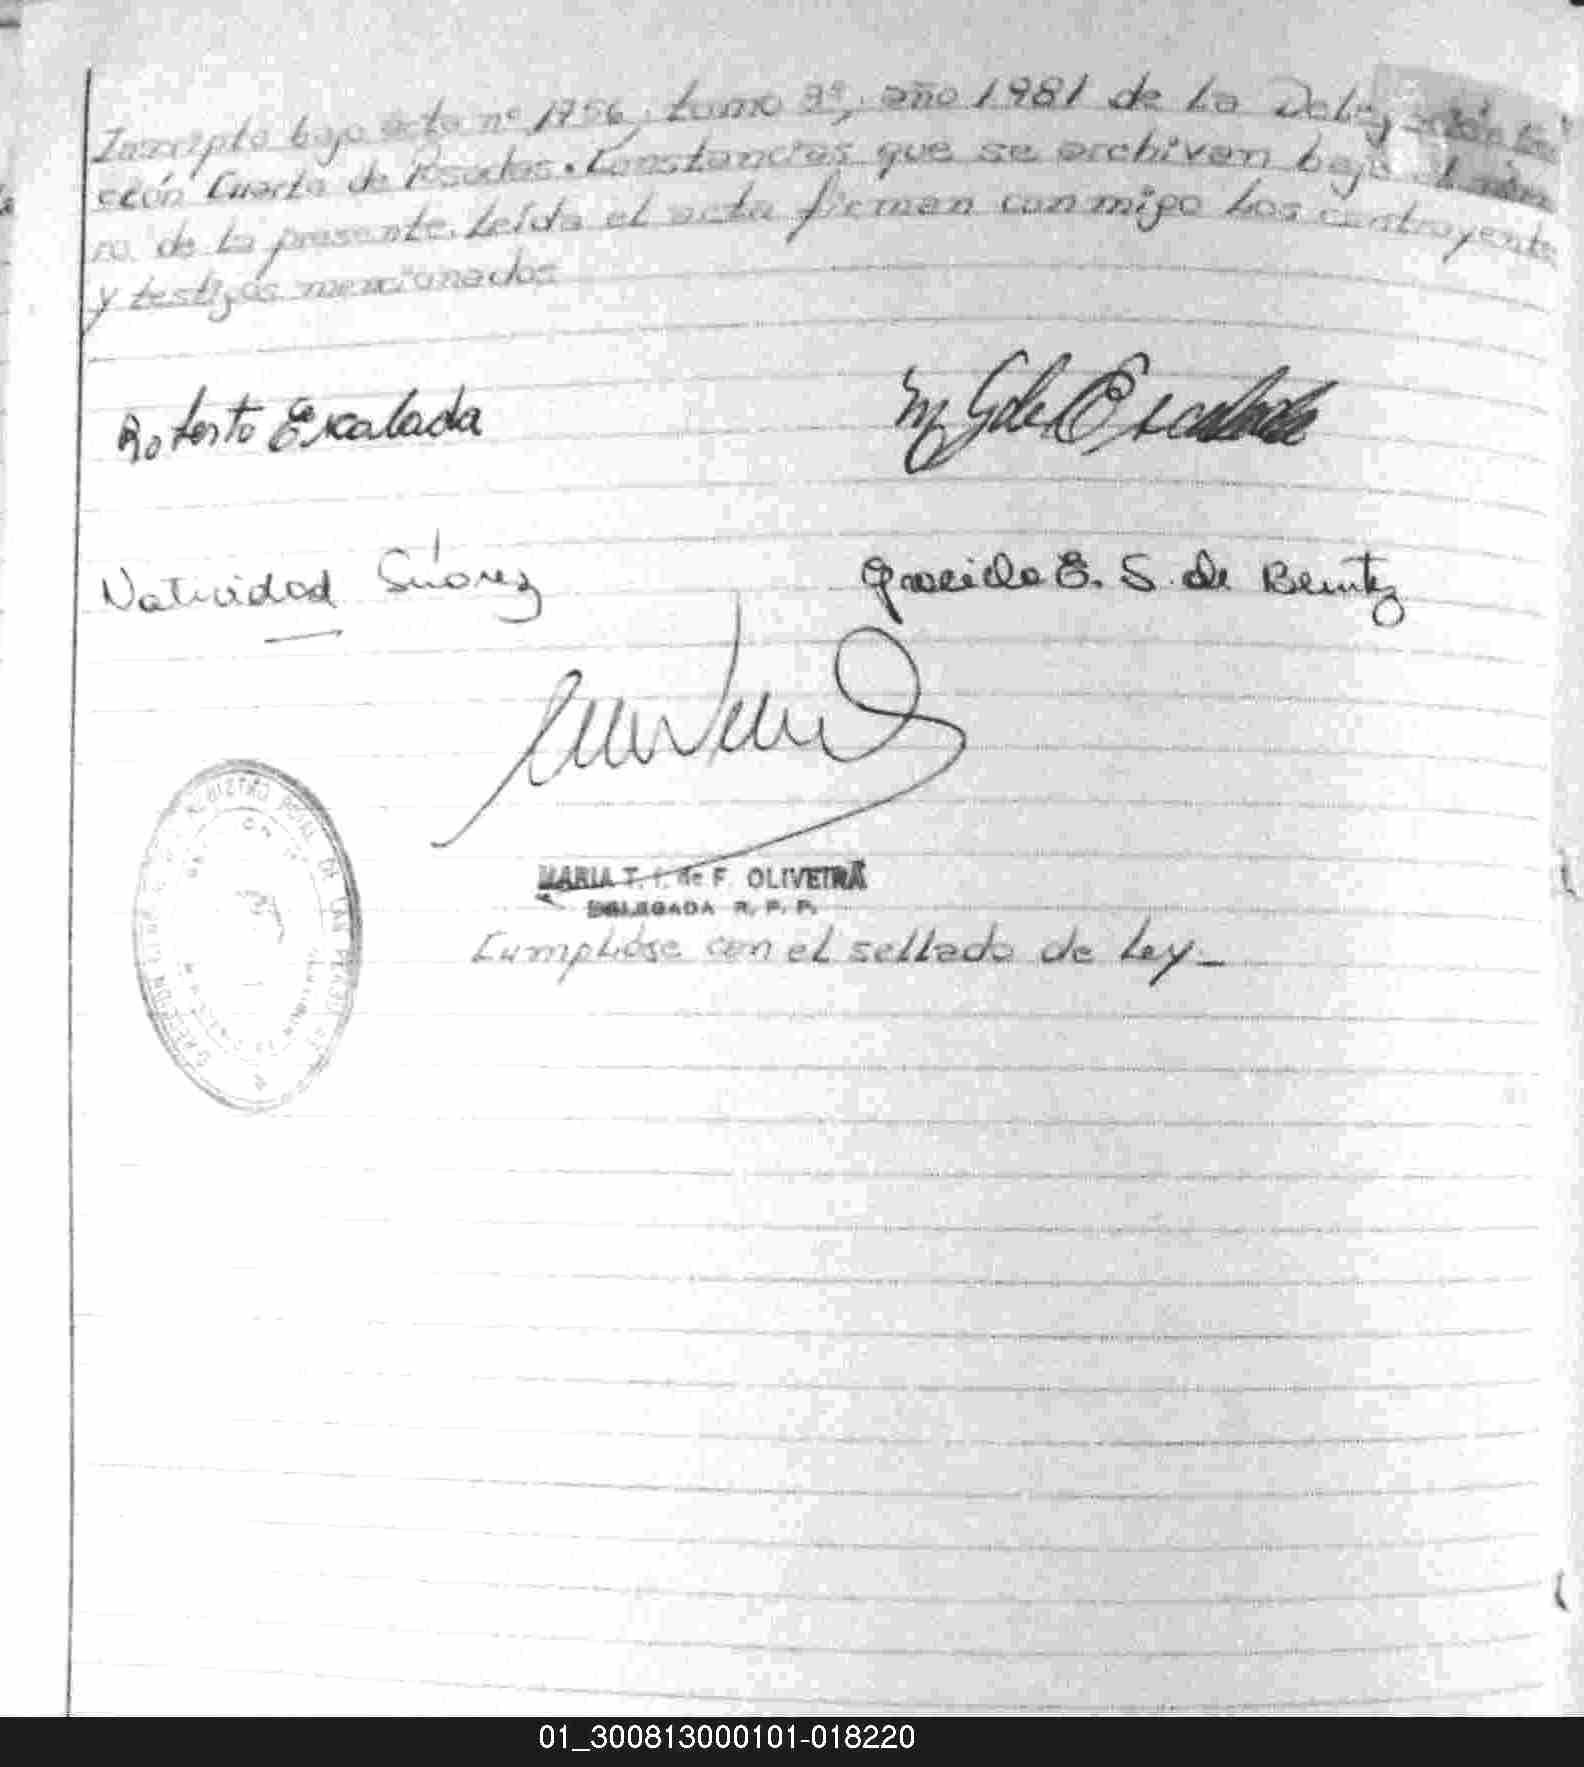 Inscripto bajo acta nº 1756, tomo 3º, año 1981 de la Delegación
cción Cuarta de Posadas. Constancias que se archivan bajo el núme
ro de la presente. Leída el acta firman conmigo los contrayentes
y testigos mencionados
Roberto Escalada
M G de Escalada
Natividad Suárez
Graciela E. S. de Benitez
REGISTRO DE LAS
MARIA T. I. de F. OLIVEIRA
DELEGADA R. P. P.
Cumplióse con el sellado de Ley_
01_300813000101-018220